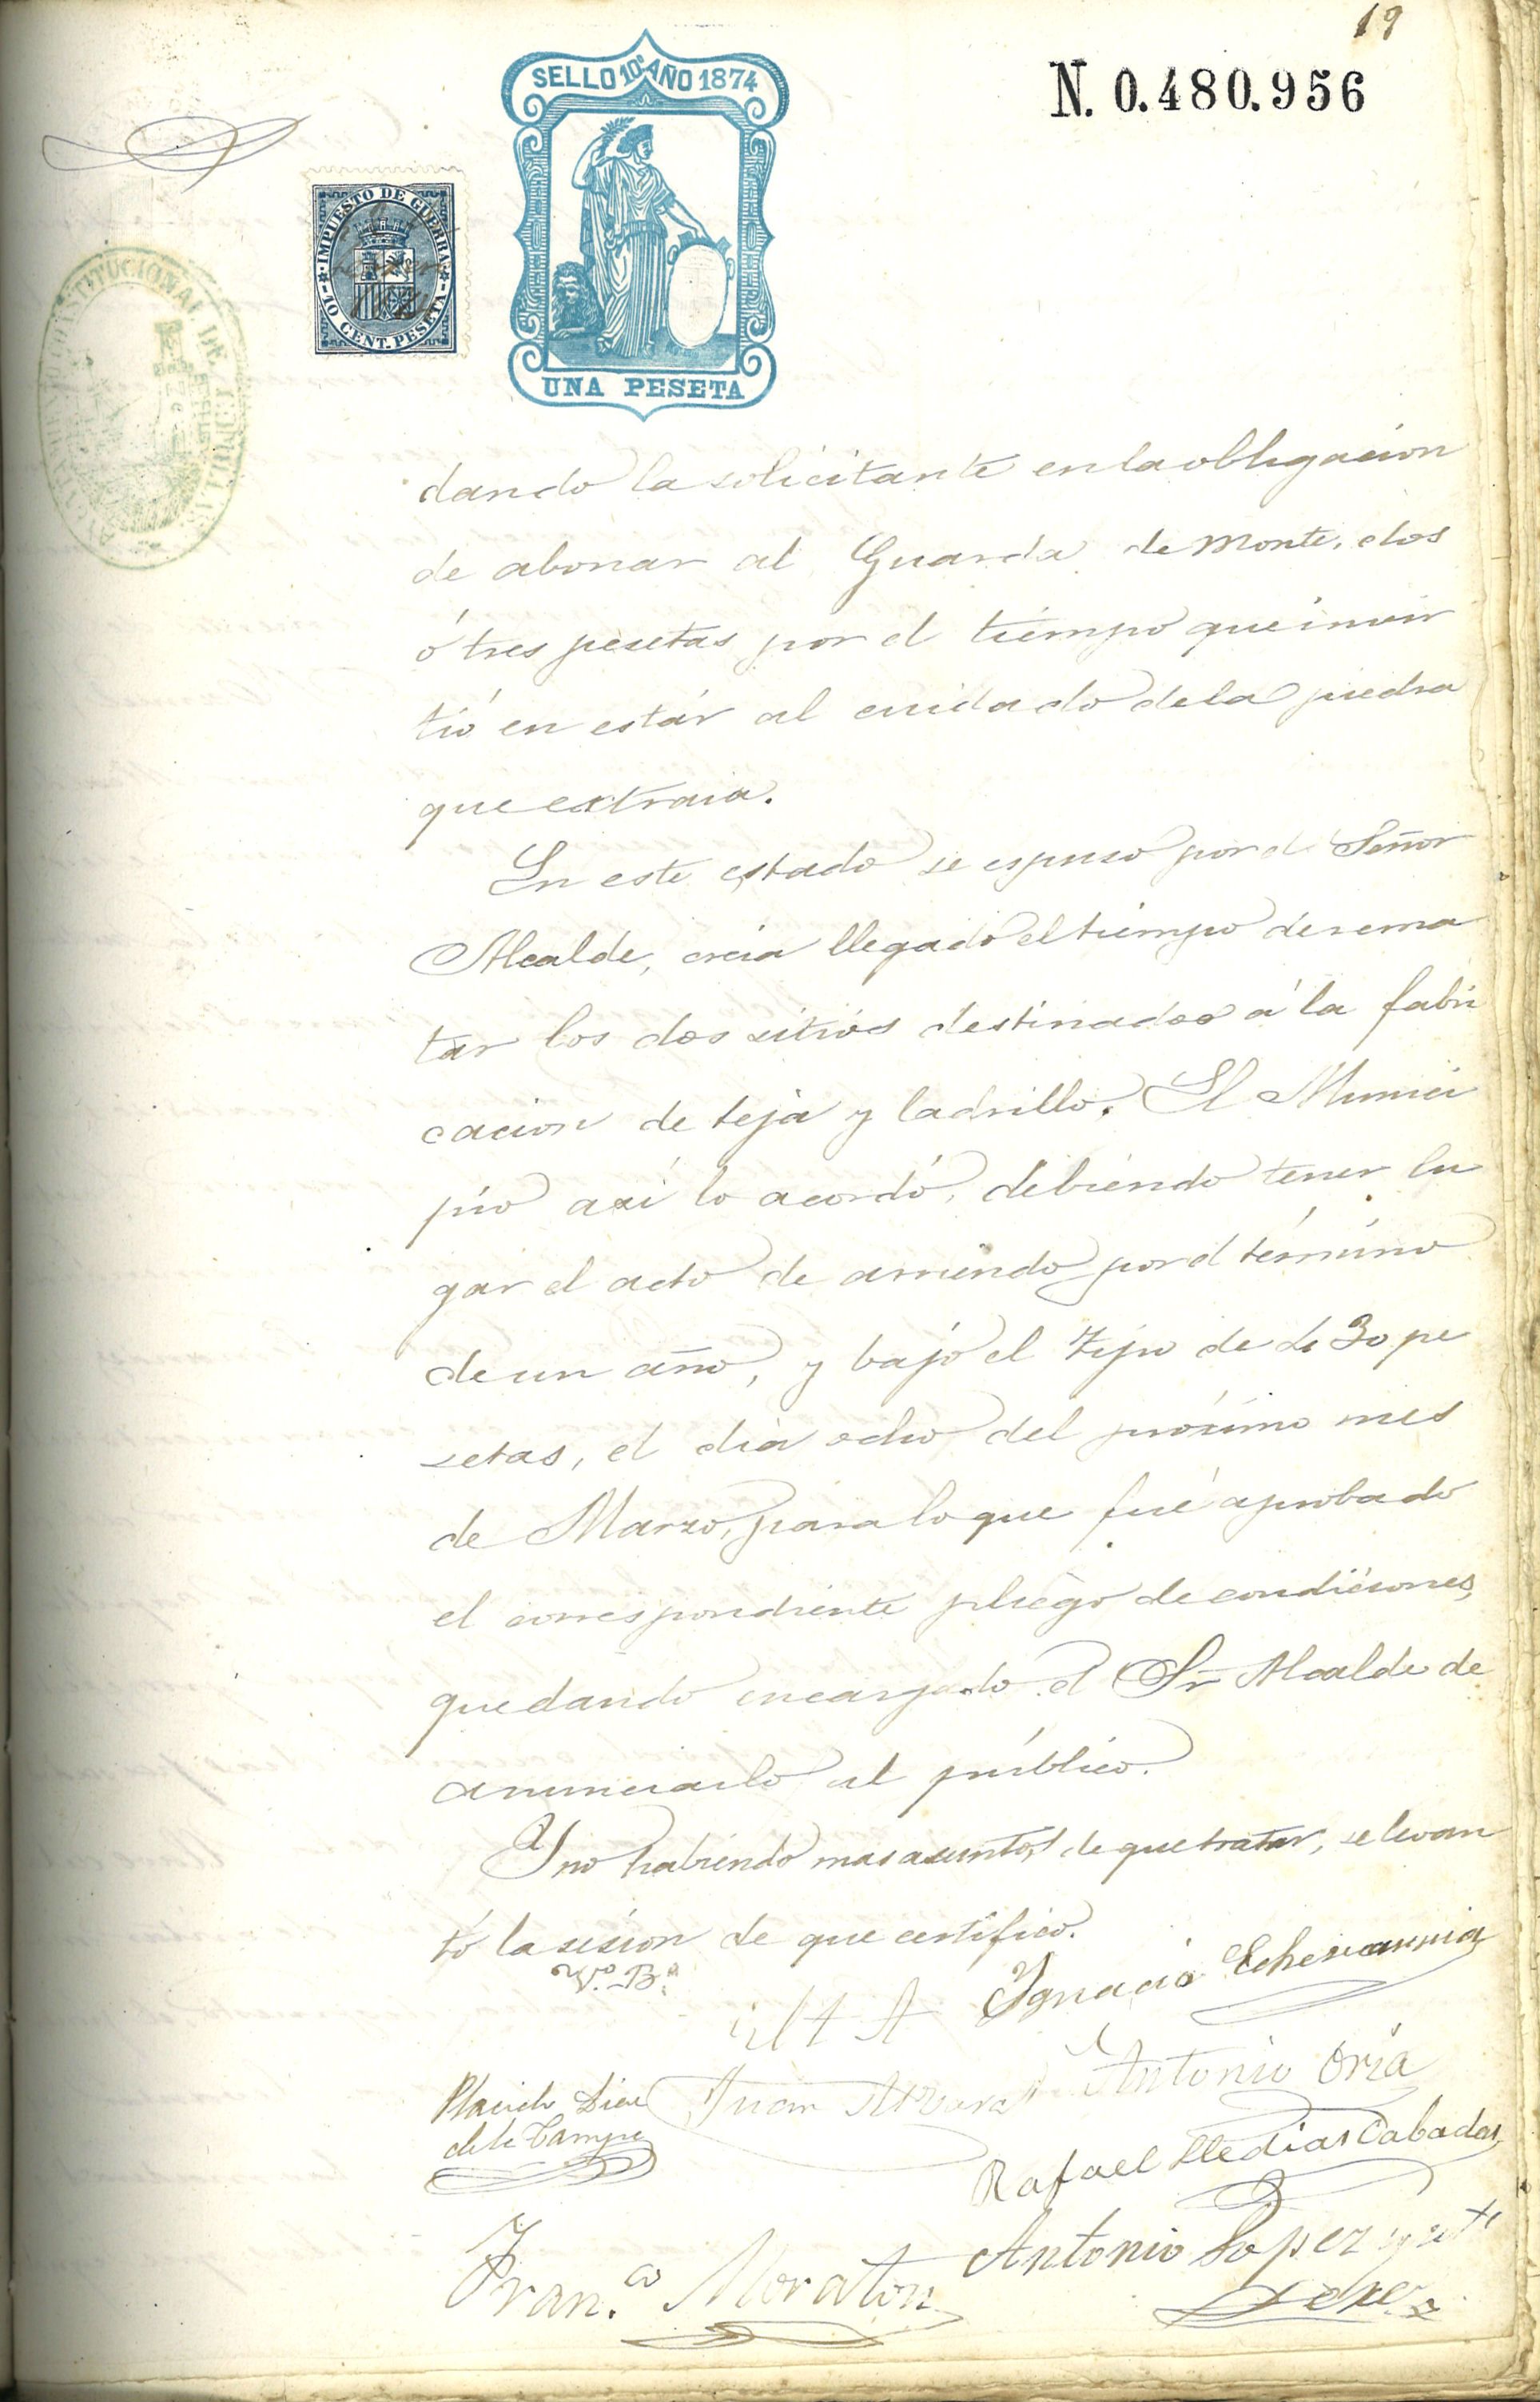 19
N. 0.480.956
SELLO 10º AÑO 1874
IMPUESTO DE GUERRA
10 CENT. PESETA
CONSTITUCIONAL DE
UNA PESETA
dando la solicitante en la obligacion
de abonar al Guarda de monte, dos
ó tres pesetas por el tiempo que inver
tió en estár al cuidado de la piedra
que extraia.
En este estado se espuso por el Señor
Alcalde, creia llegado el tiempo de rema
tar los dos sitios destinados á la fabri
cacion de teja y ladrillo. El Munici
pio así lo acordó, debiendo tener lu
gar el acto de arriendo por el término
de un año, y bajo el tipo de 30 pe
setas, el dia ocho del próximo mes
de Marzo, para lo que fué aprobado
el correspondiente pliego de condiciones,
quedando encargado el Sr Alcalde de
anunciarlo al público.
Y no habiendo mas asuntos de que tratar, se levan
tó la sesion de que certifico.
Vº. Bº.
Ignacio Echevarria
Antonio Oria
Juan
Placido Diez
de la Campa
Rafael Lledias Cabadas
Antonio Lopez
Franco. Moraton